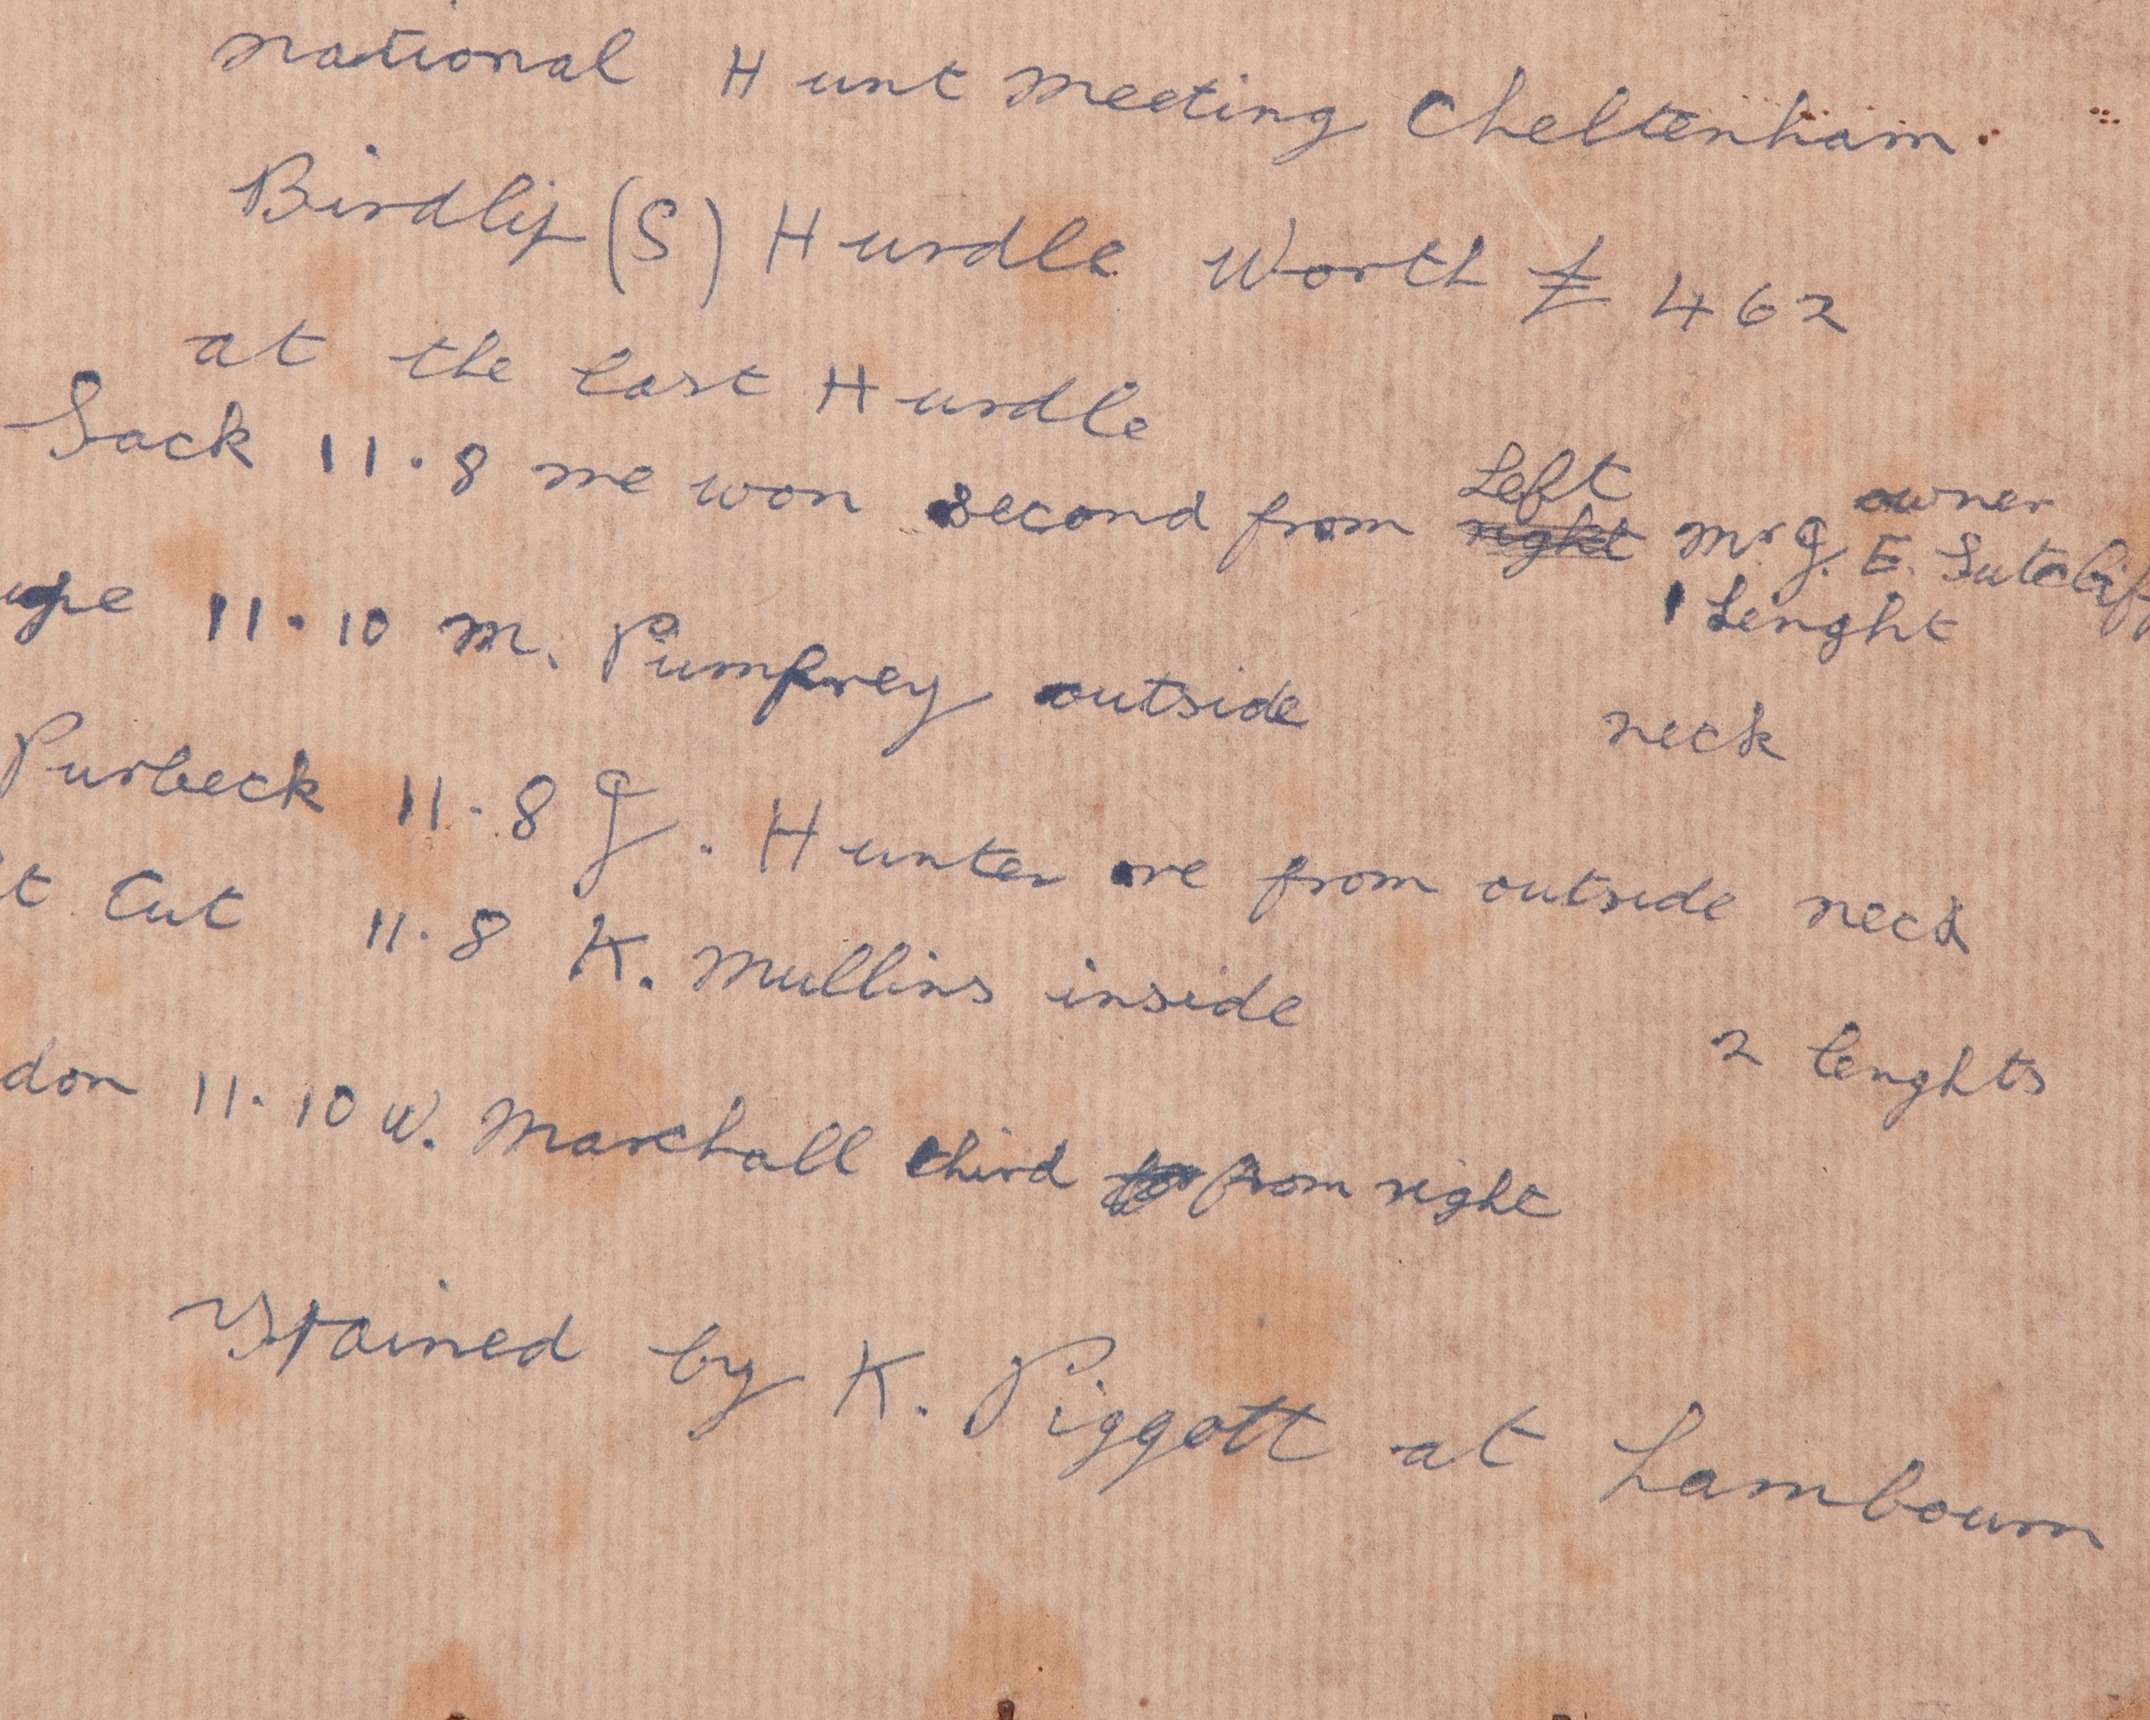 national Hunt meeting Cheltenham.
Birdlip (S) Hurdle Worth £ 462
at the last Hurdle
Sack 11.8 me won second from Left owner
right Mr G. E. Sutcliff
1 Lenght
11.10 M. Pumfrey outside neck
Purbeck 11.8 G. Hunter one from outside neck
t Cut 11.8 K. Mullins inside 2 lenghts
don 11.10 W. Marshall third from right
trained by K. Piggott at Lambourn